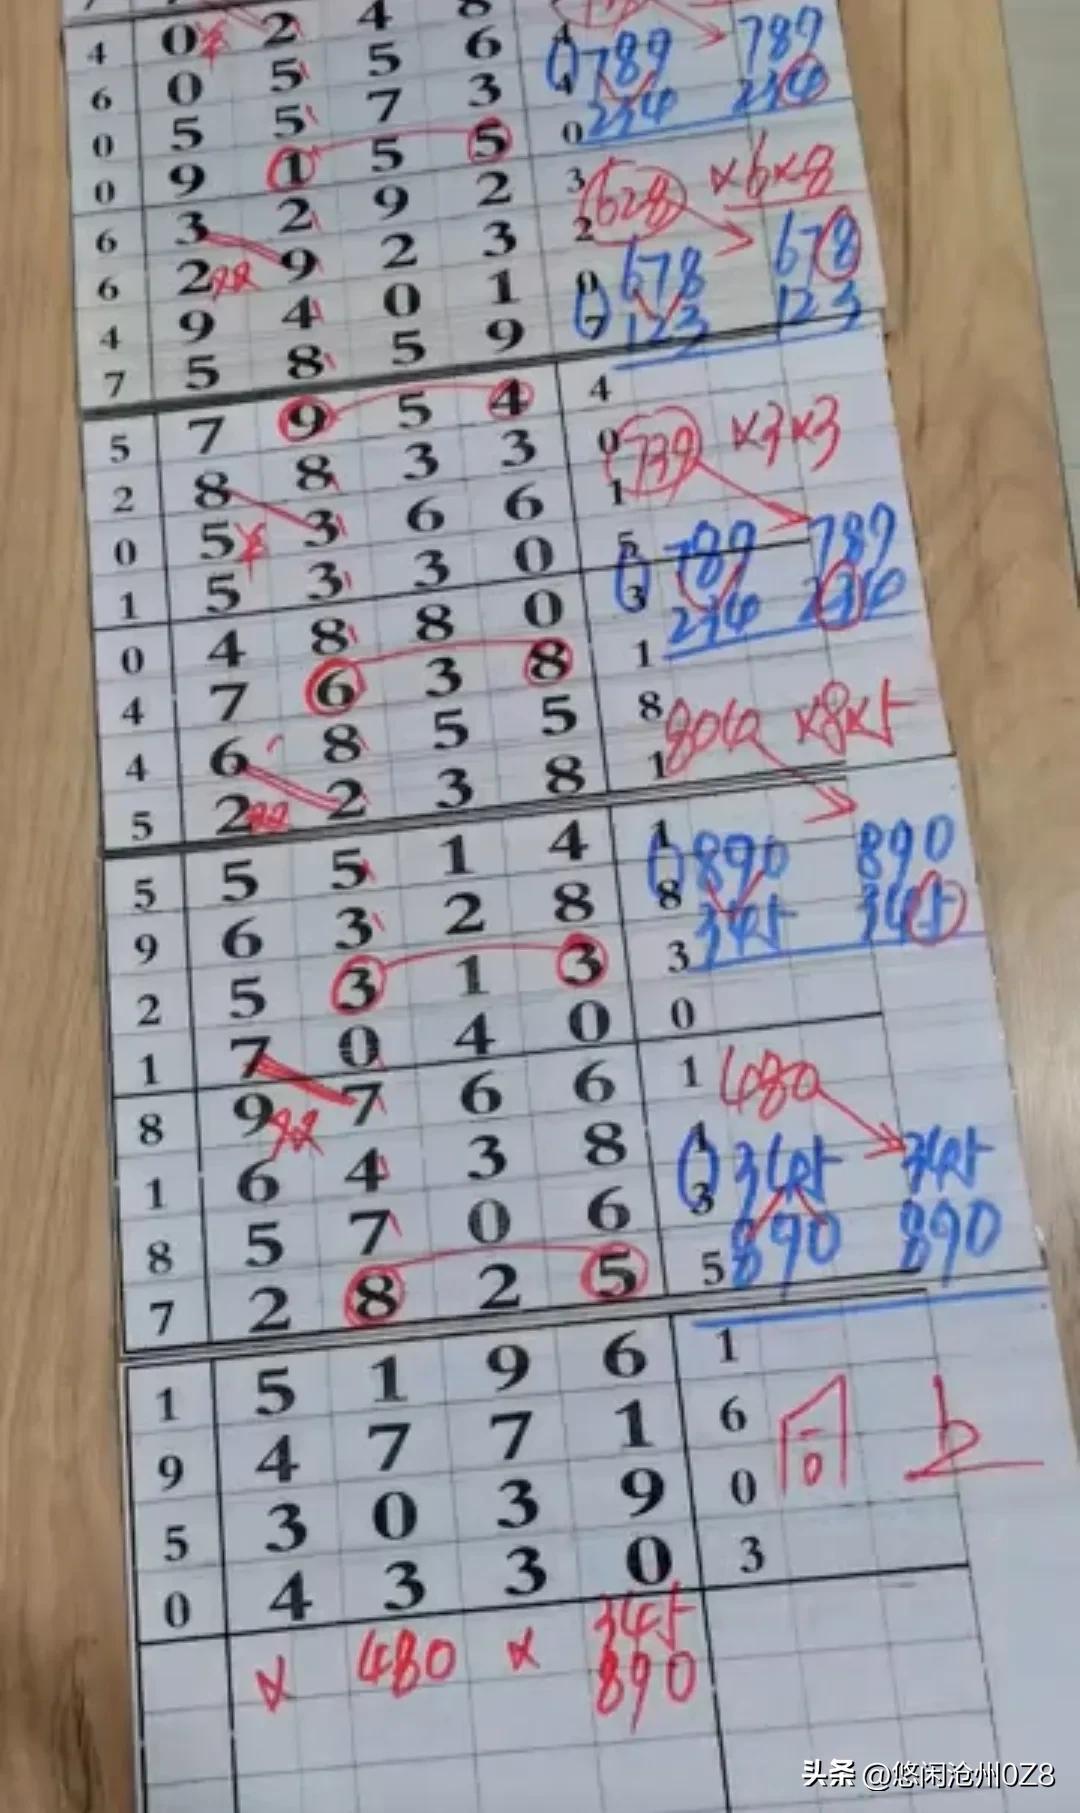 4 0 2 4 8
6 0 5 5 6 4 789 789
0 5 5 7 3 4 234 234
0 9 1 5 5 0
6 3 2 9 2 3 628 ×6×8
6 2 9 2 3 2 678 678
4 9 4 0 1 0 123 123
7 5 8 5 9 7
5 7 9 5 4 4
2 8 8 3 3 0 739 ×3×3
0 5 3 6 6 1
1 5 3 3 0 5 789 789
0 4 8 8 0 3 234 234
4 7 6 3 8 1
4 6 8 5 5 8 804 ×8×5
5 2 2 3 8 1
5 5 5 1 4 1 890 890
9 6 3 2 8 8 345 345
2 5 3 1 3 3
1 7 0 4 0 0
8 9 7 6 6 1 480
1 6 4 3 8 1 345 345
8 5 7 0 6 3 890 890
7 2 8 2 5 5
1 5 1 9 6 1
9 4 7 7 1 6
5 3 0 3 9 0
0 4 3 3 0 3
× 480 × 345
890
头条 @悠闲沧州0Z8